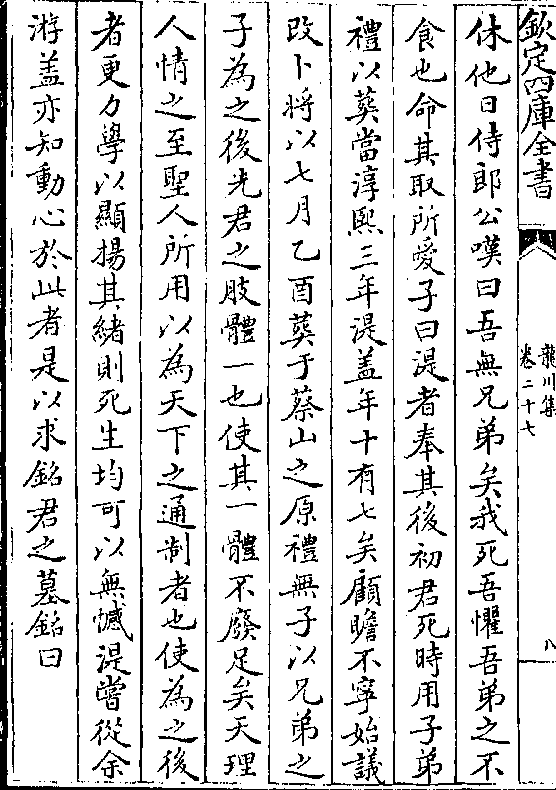 欽定四庫全書
龍川集
卷二十七
八
休他日侍郎公嘆曰吾無兄弟矣我死吾懼吾弟之不
食也命其取所愛子曰湜者奉其後初君死時用子弟
禮以葬當淳熙三年湜盖年十有七矣顧瞻不寧始議
改卜將以七月乙酉葬于蔡山之原禮無子以兄弟之
子為之後先君之肢體一也使其一體不廢足矣天理
人情之至聖人所用以為天下之通制者也使為之後
者更力學以顯揚其緒則死生均可以無憾湜嘗從余
游盖亦知動心於此者是以求銘君之墓銘曰